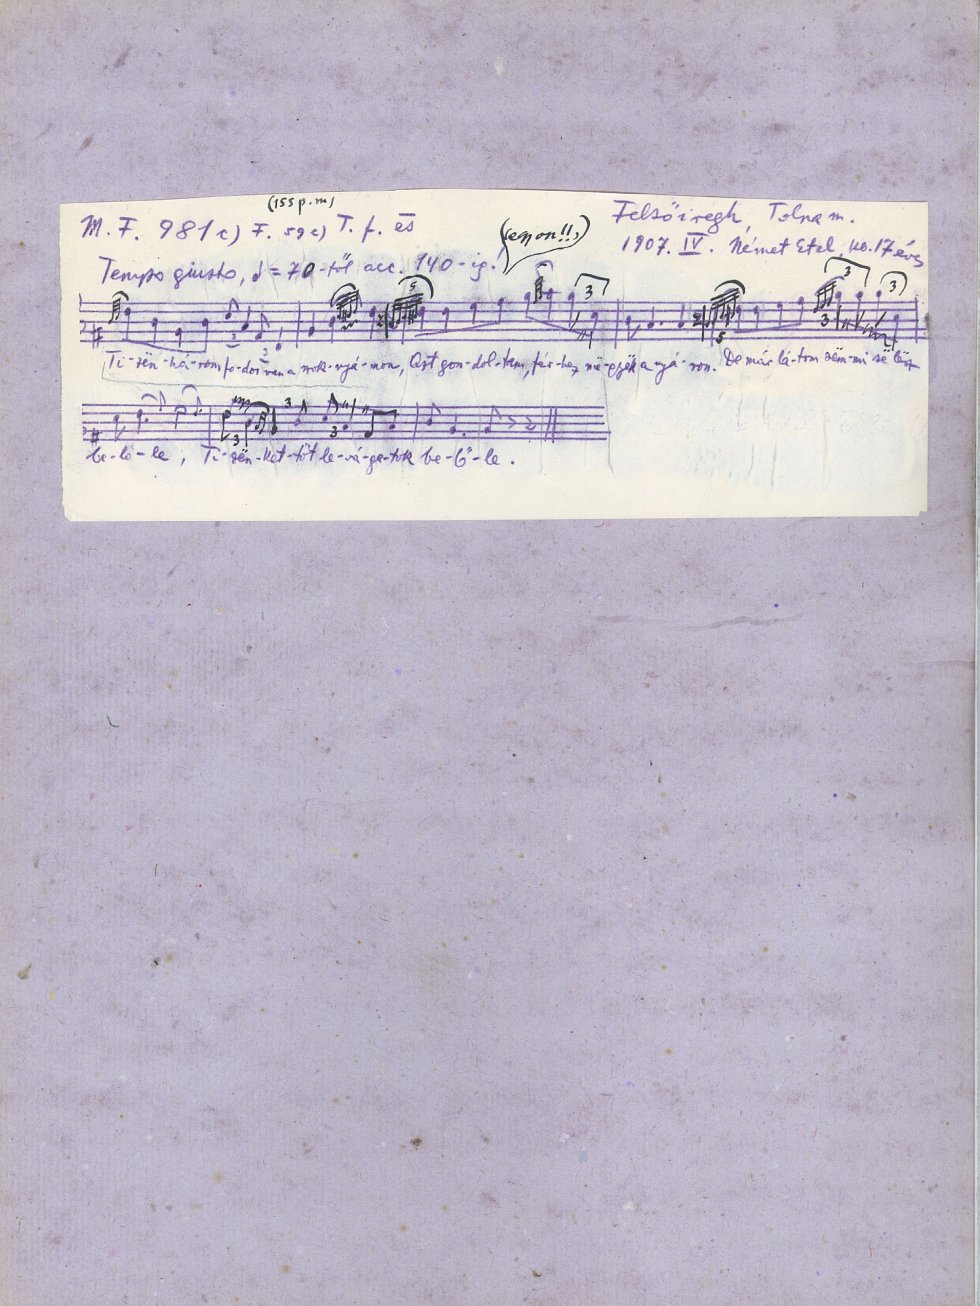 (155 p.m)
M. F. 981c) F. 59c) T. f. és
Felsőiregh, Tolna m.
1907. IV. Német Etel, kb. 17 éves
Tempo giusto, ♩ = 70-től acc. 140-ig!
Ti-zën-há-rom fo-dor van a rok-lyá-mon, Aszt gon-dol-tam, fér-hez më-gyëk a nyá-ron. De már lá-tom sëm-mi së lësz
be-lő-le, Ti-zën-ket-tőt le-vá-ga-tok be-lő-le.